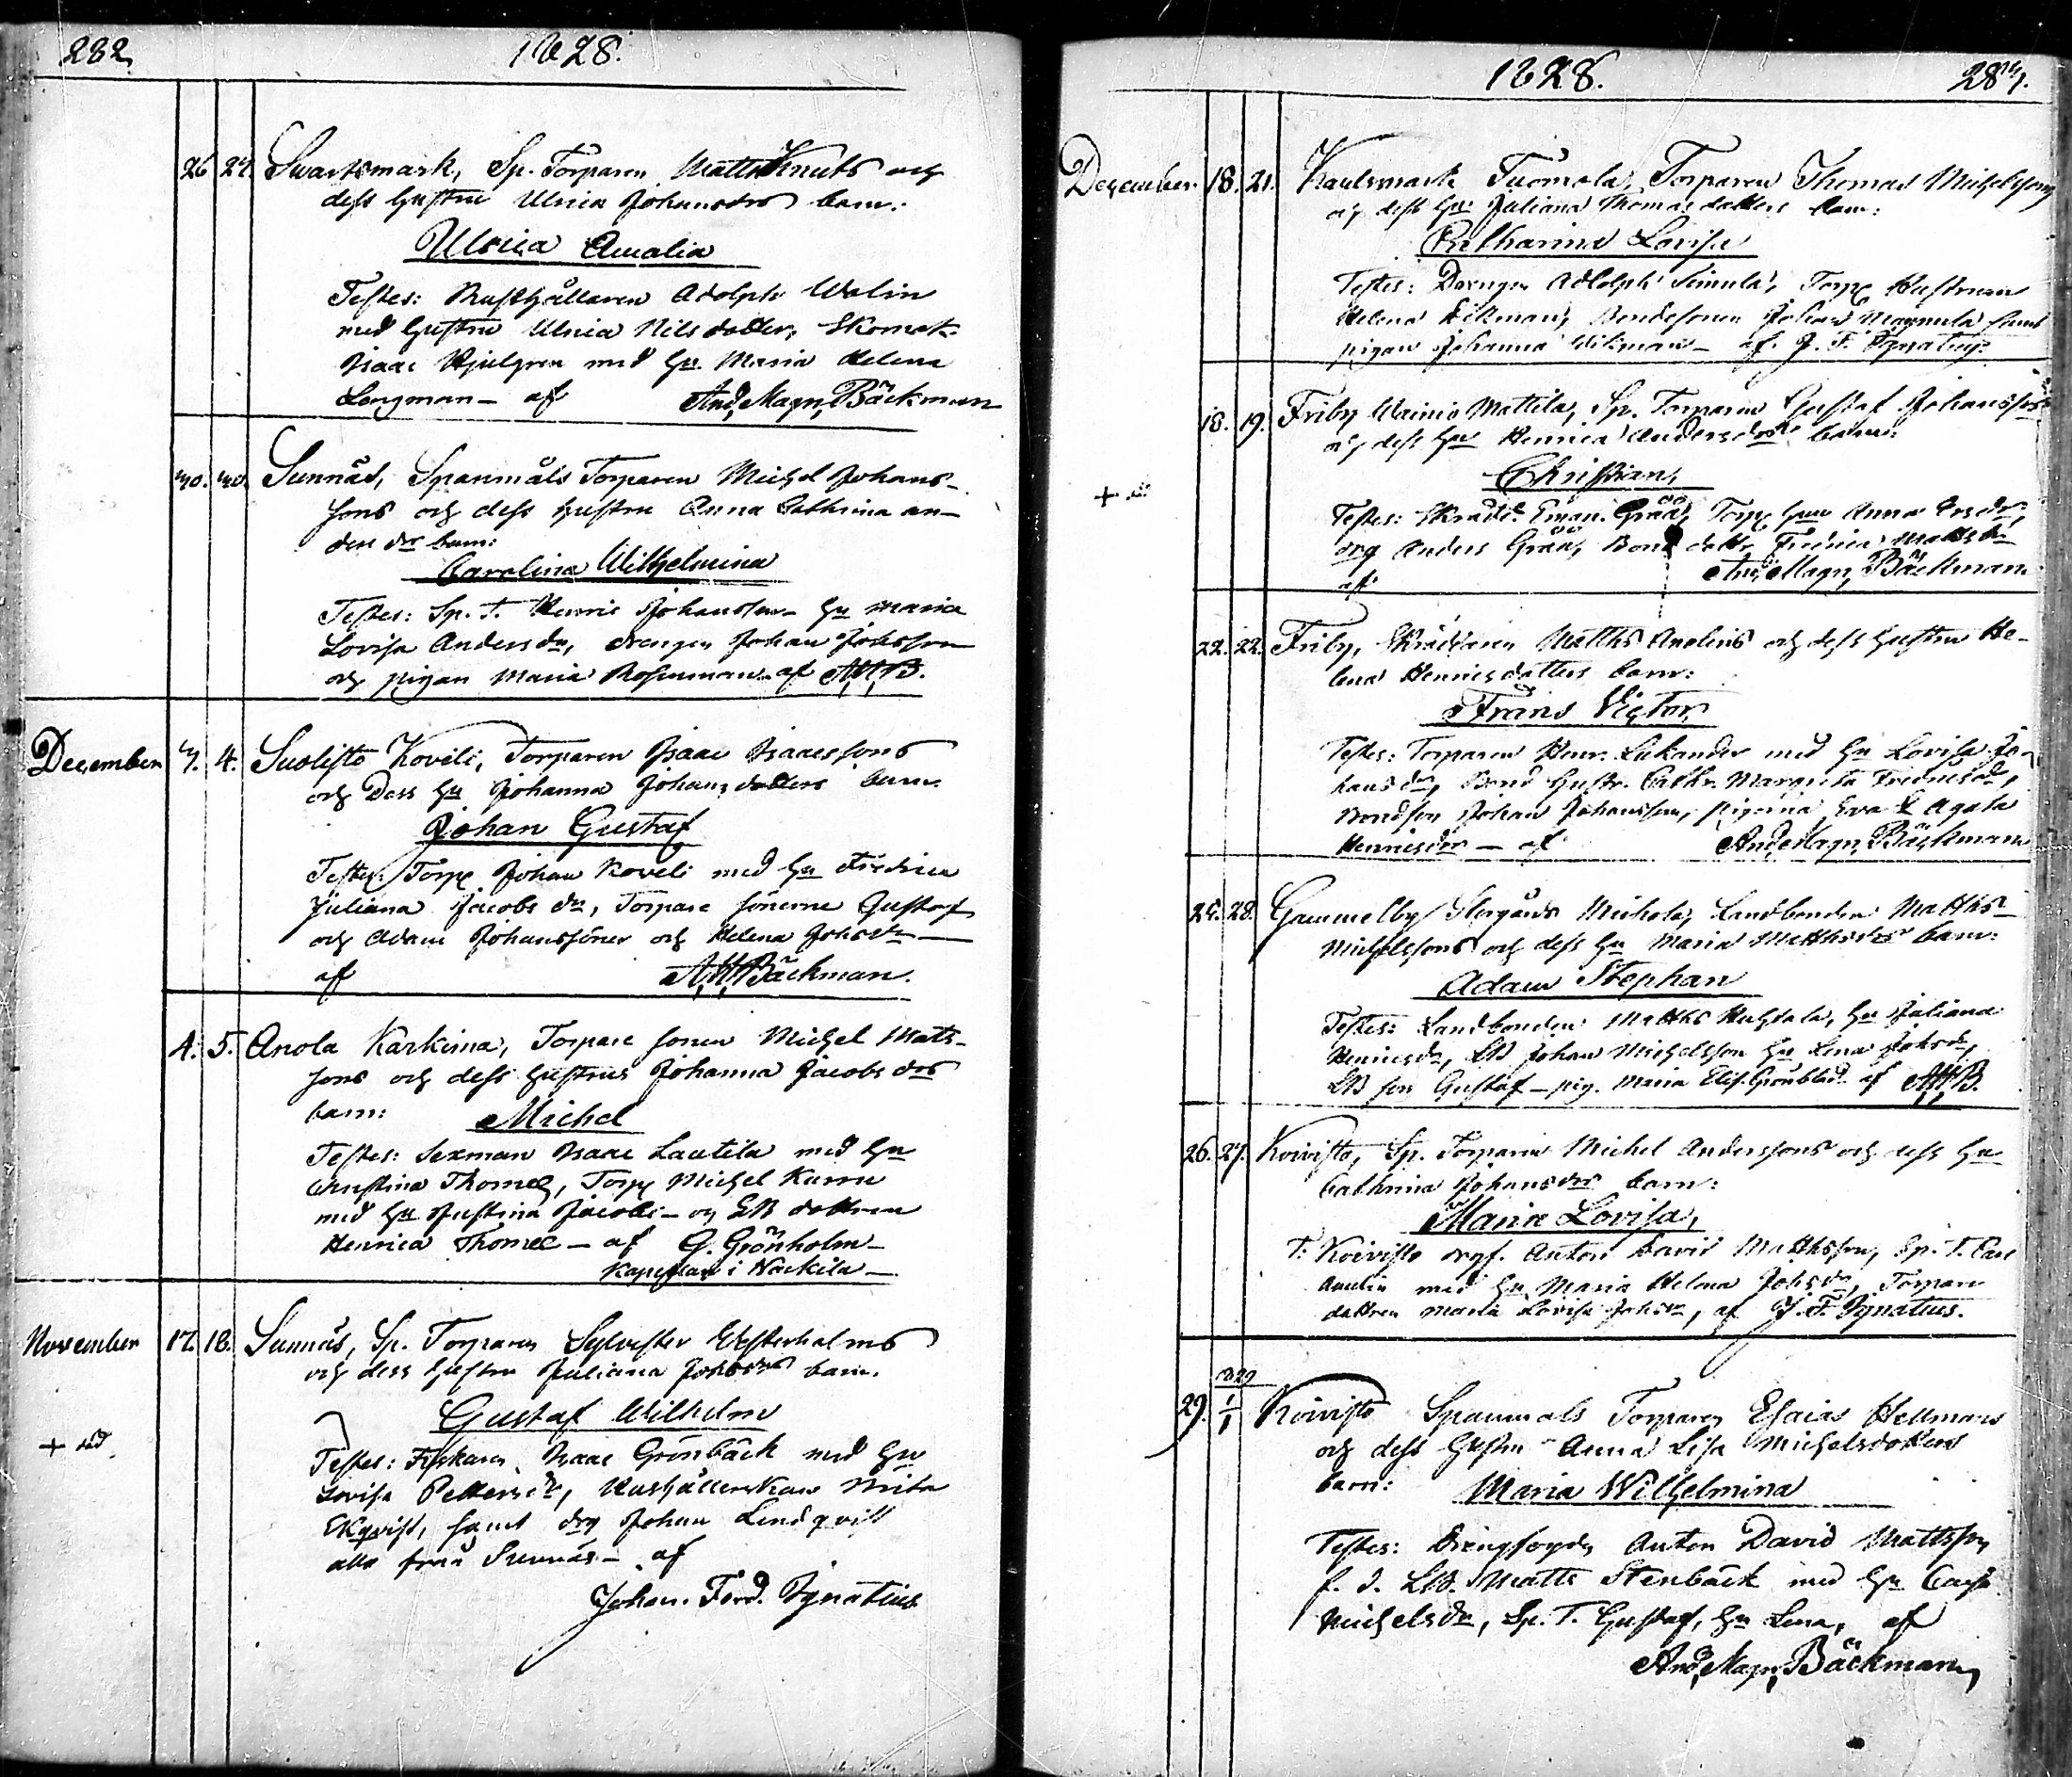 282.
1828.
26 27. Swartsmark, Sp. Torparen Matts Knuts och
dess hustru Ulrica Johansdrs barn:
Ulrica Amalia
Testes: Rusthållaren Adolph Walin
med hustru Ulrica Nilsdotter, Skomak.
Isaac Hjulgren med hu Maria Helena
Longman – af And. Magn. Bäckman
30. 30. Sunnäs, Spanmåls Torparen Michel Johans-
sons och dess hustru Anna Cathrina An-
ders dr barn:
Carolina Wilhelmina
Testes: Sp. T. Henric Johansson – hu Maria
Lovisa Anders dr, drengen Johan Johsson
och pigan Maria Rosenman – af A.M.B.
December 3. 4. Suolisto Koveli, Torparen Isaac Isaacssons
och Dess hu Johanna Johansdotters barn
Johan Gustaf
Testes: Torp Johan Koveli med hu Fredrica
Juliana Jacobs dr, Torpare sönerne Gustaf
och Adam Johanssöner och Helena Johsdr –
af A.M. Bäckman.
4. 5. Anola Karkima, Torpare sonen Michel Mats-
sons och dess hustrus Johanna Jacobs drs
barn: Michel
Testes: Sexman Isaac Lautila med hu
Christina Thomeé, Torp Michel Kurru
med hu Justina Jacobs – og LB dottren
Henrica Thomeé – af G. Grönholm –
Kapellan i Nackila –
November 17. 18. Sunnäs, Sp. Torparen Sylvester Westerholms
och dess hustru Juliana Johsdrs barn.
Gustaf Wilhelm
+ död
Testes: Fiskaren Isaac Grönbäck med hu
Lovisa Petters dr, Hushållerskan Brita
Ekqvist, samt drg Johan Lindqvist
alla från Sunnäs – af
Johan. Ferd. Ignatius
1828. 283.
December 18. 21. Karlsmark Tuomola, Torparen Thomas Michelssons
och dess hus Juliana Thomasdotters barn:
Catharina Lovisa
Testes: Drengen Adolph Simula, Torp Hustrun
Helena Wikman, Bondesonen Johan Magnula samt
pigan Johanna Wikman – af J. F. Ignatius.
18. 19. Friby Wainio Mattila, Sp. Torparen Gustaf Johanssons
och dess hus Henrica Andersdrs barn:
Christian,
+ död
Testes: Skrädd. Eman. Gråå, Torp hun Anna Ersdr,
drg Anders Gråå, Bond dottr Fredrica Matts dr
af And. Magn. Bäckman
22. 22. Friby, Skräddaren Matths Anolins och dess hustru He-
lena Henricsdotters barn:
Frans Victor
Testes: Torparen Henr. Lukander med hu Lovisa Jo-
hans dr, Bond hustr. Cathr. Margreta Fredricsdr,
Bondson Johan Johansson, pigorna Eva & Agata
Henricsdr – af And. Magn. Bäckman
25. 28. Gammelby Storgårds Michola, Landbonden Matths
Michelssons och dess hu Maria Matthsdrs barn:
Adam Stephan
Testes: Landbonden Matths Huhtala, hu Juliana
Henricsdr, LB Johan Michelsson hu Lena Johsdr,
LB son Gustaf – pig. Maria Elis. Grönblad. af A.M.B.
26. 27. Koivisto, Sp. Torparen Michel Anderssons och dess hu
Cathrina Johansdrs barn:
Maria Lovisa,
T: Koivisto drgf. Anton David Matthsson, Sp. T. Carl
Amelin med hu Maria Helena Johsdr, Torpare
dottren Maria Lovisa Johsdr, af J. F. Ignatius.
1829
29. 1/1 Koivisto Spanmåls Torparen Esaias Hellmans
och dess hustru Anna Lisa Michelsdotters
barn: Maria Wilhelmina
Testes: Drengfogden Anton David Mattsson
f. d. LB. Matts Stenbäck med hu Caisa
Michelsdr, Sp. T. Gustaf, hu Lena, af
And. Magn. Bäckman